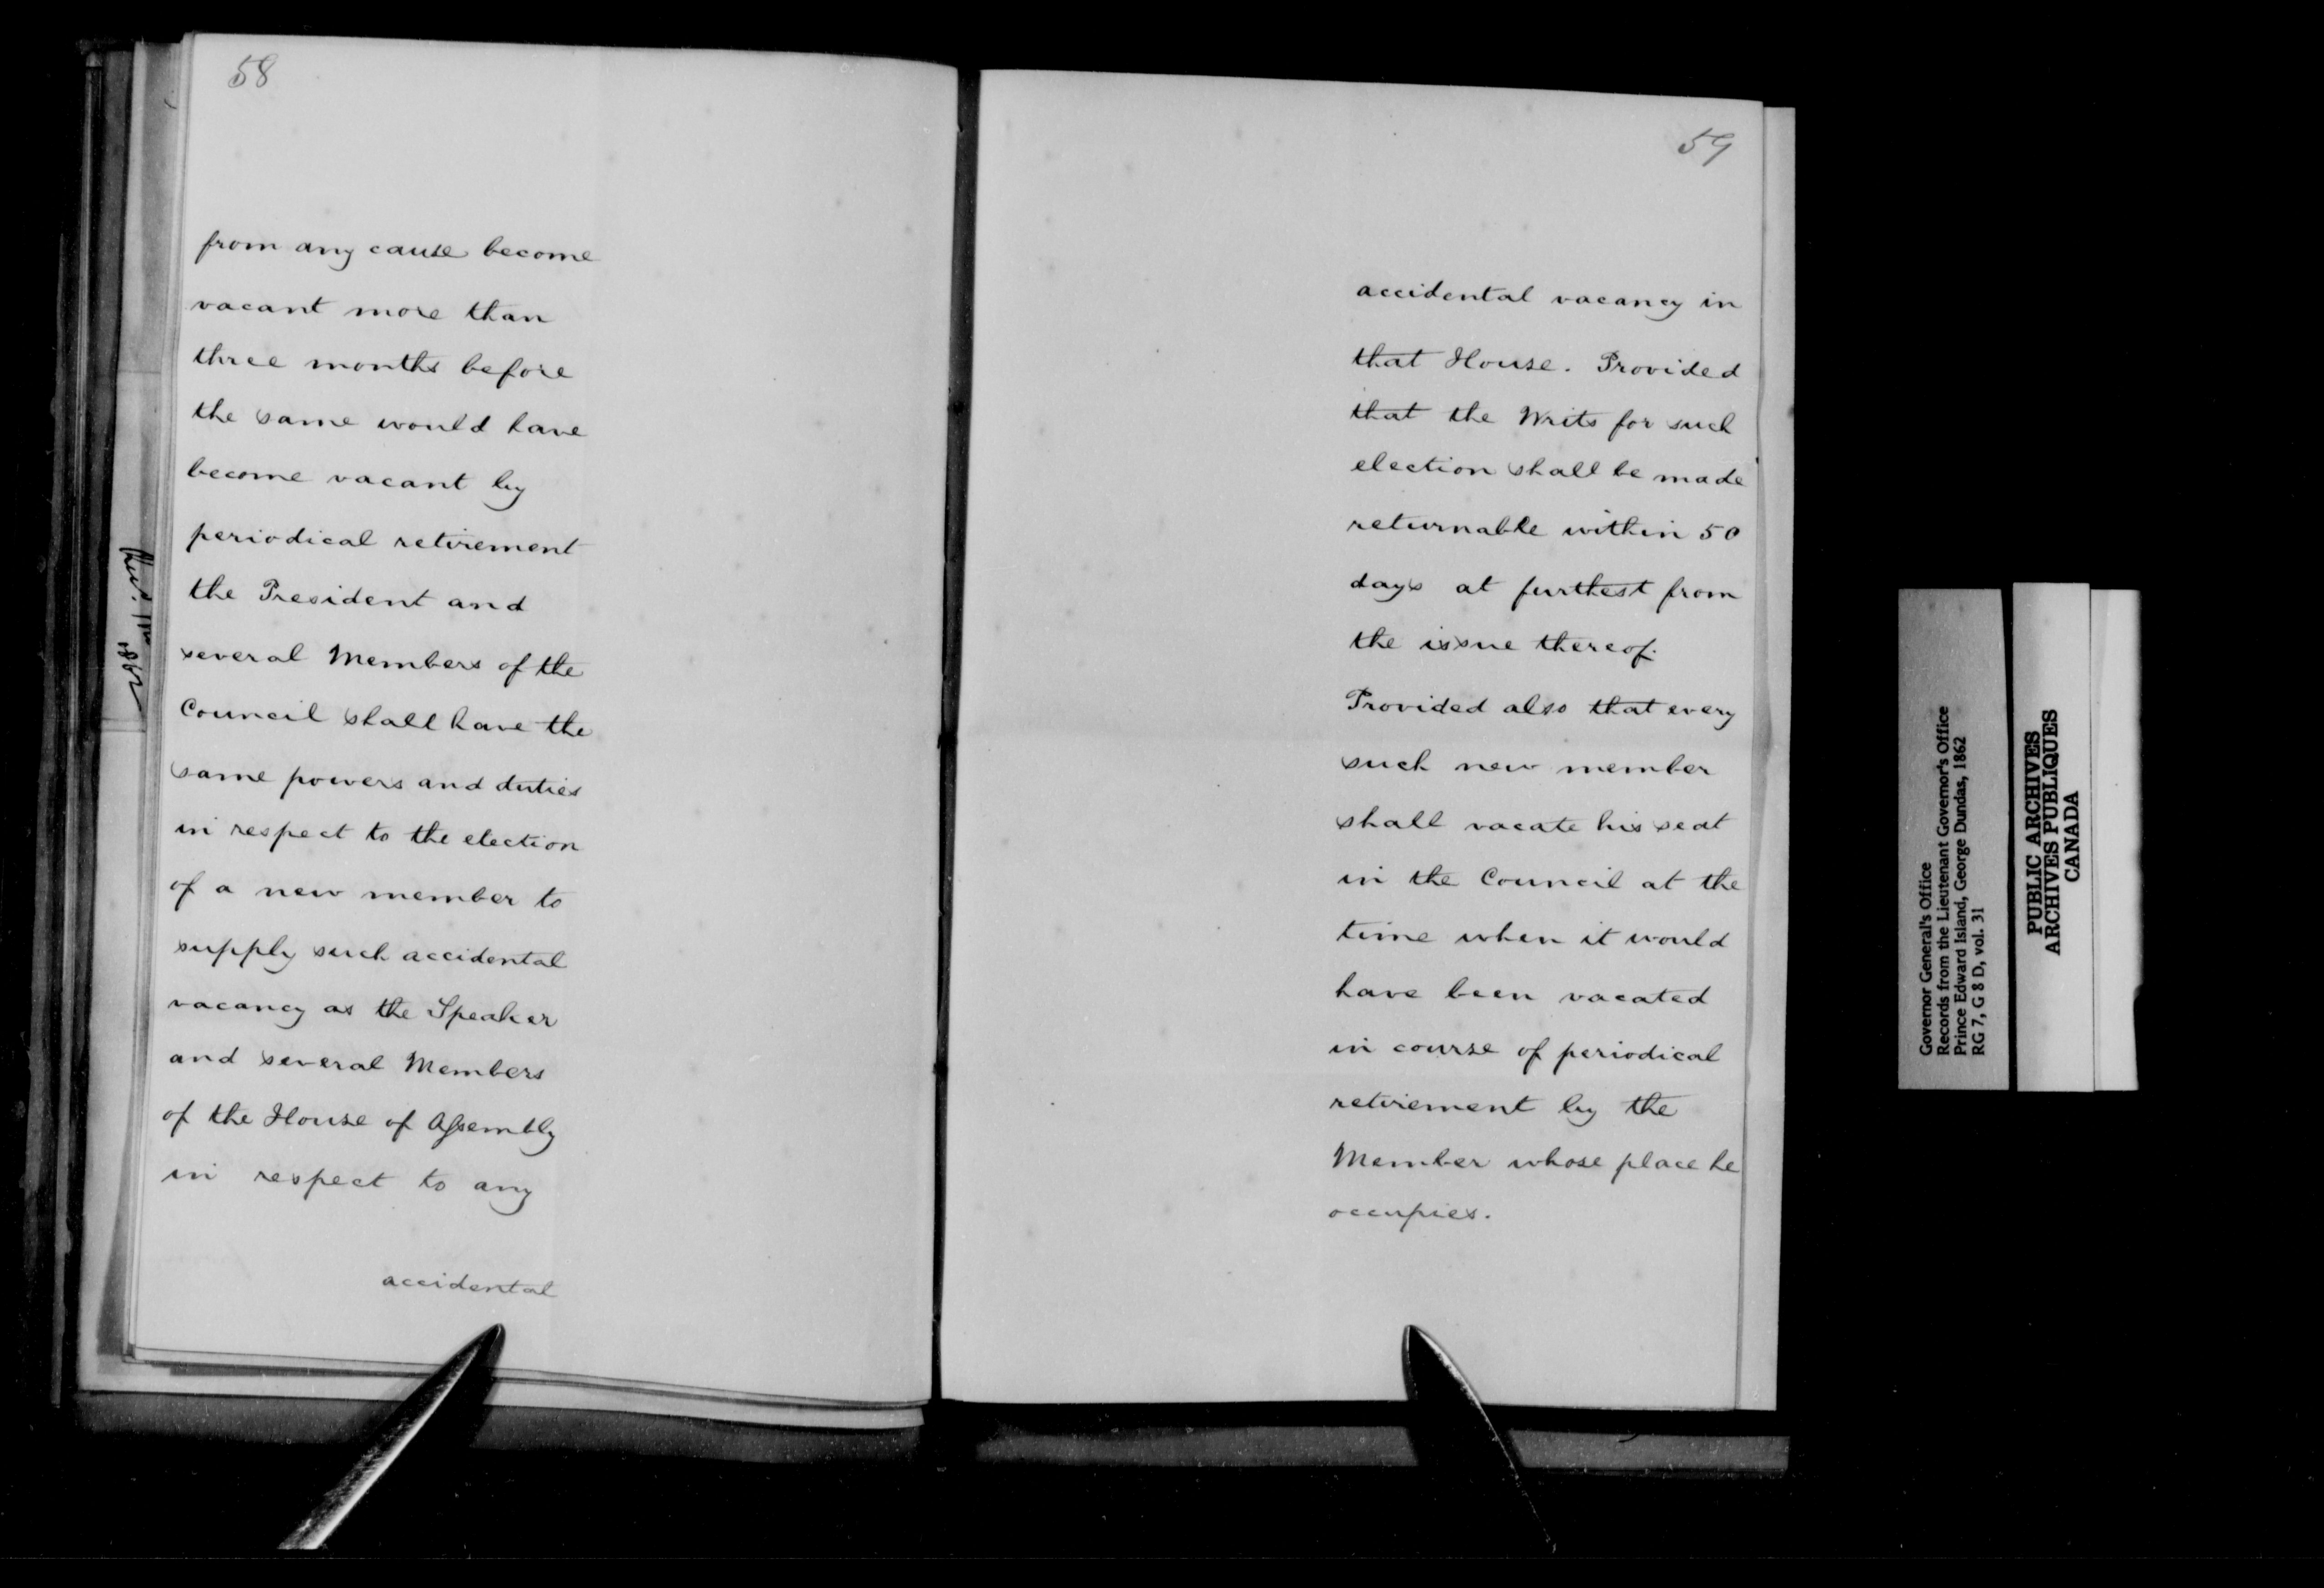 58
from any cause become
vacant more than
three months before
the same would have
become vacant by
periodical retirement
the President and
several Members of the
Council shall have the
same powers and duties
in respect to the election
of a new member to
supply such accidental
vacancy as the Speaker
and several Members
of the House of Assembly
in respect to any
accidental
59
accidental vacancy in
that House. Provided
that the Writs for such
election shall be made
returnable within 50
days at furthest from
the issue thereof.
Provided also that every
such new member
shall vacate his seat
in the Council at the
time when it would
have been vacated
in course of periodical
retirement by the
Member whose place he
occupies.
Governor General's Office
Records from the Lieutenant Governor's Office
Prince Edward Island, George Dundas, 1862
RG 7, G 8 D, vol. 31
PUBLIC ARCHIVES
ARCHIVES PUBLIQUES
CANADA